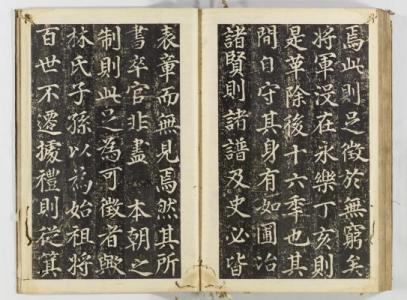 焉此則足徵於無窮矣
將軍沒在永樂丁亥則
是革除後十六季也其
間自守其身有如圃治
諸賢則諸譜及史必皆
表章而無見焉然其所
書卒官非盡　本朝之
制則此足為可徵者歟
林氏子孫以為始祖將
百世不遷據禮則從箕